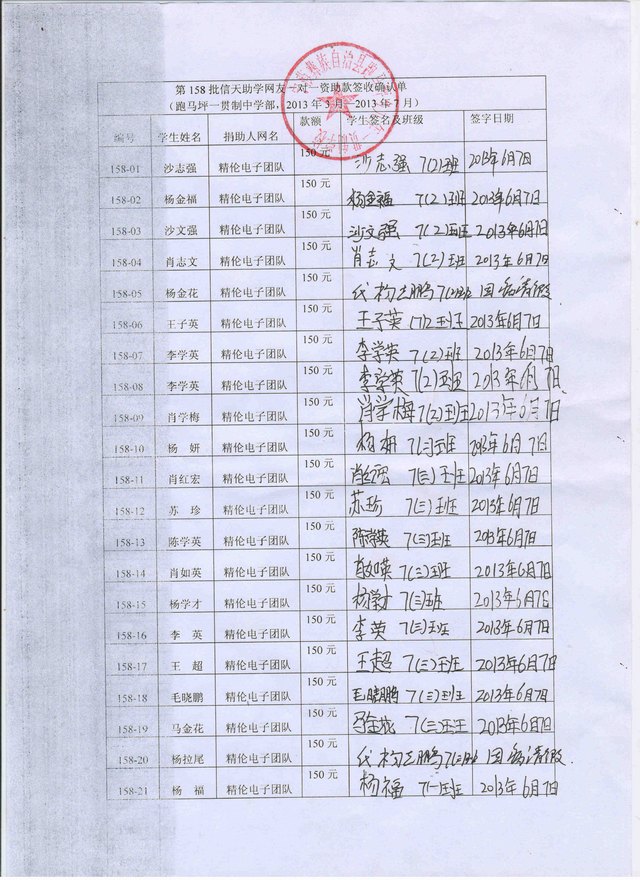 第 158 批信天助学网友一对一资助款签收确认单
（跑马坪一贯制中学部，2013 年 3 月—2013 年 7 月）
编号 学生姓名 捐助人网名 款额 学生签名及班级 签字日期
158-01 沙志强 精伦电子团队 150 元 沙志强 7(2)班 2013年6月7日
158-02 杨金福 精伦电子团队 150 元 杨金福 7(2)班 2013年6月7日
158-03 沙文强 精伦电子团队 150 元 沙文强 7(2)班 2013年6月7日
158-04 肖志文 精伦电子团队 150 元 肖志文 7(2)班 2013年6月7日
158-05 杨金花 精伦电子团队 150 元 代 鹏 因病请假
158-06 王子英 精伦电子团队 150 元 王子英 7(2)班 2013年6月7日
158-07 李学英 精伦电子团队 150 元 李学英 7(2)班 2013年6月7日
158-08 李学英 精伦电子团队 150 元 李学英 7(2)班 2013年6月7日
158-09 肖学梅 精伦电子团队 150 元 肖学梅 7(2)班 2013年6月7日
158-10 杨 妍 精伦电子团队 150 元 杨妍 7(三)班 2013年6月7日
158-11 肖红宏 精伦电子团队 150 元 肖红宏 7(三)班 2013年6月7日
158-12 苏 珍 精伦电子团队 150 元 苏珍 7(三)班 2013年6月7日
158-13 陈学英 精伦电子团队 150 元 陈学英 7(三)班 2013年6月7日
158-14 肖如英 精伦电子团队 150 元 肖如英 7(三)班 2013年6月7日
158-15 杨学才 精伦电子团队 150 元 杨学才 7(三)班 2013年6月7日
158-16 李 英 精伦电子团队 150 元 李英 7(三)班 2013年6月7日
158-17 王 超 精伦电子团队 150 元 王超 7(三)班 2013年6月7日
158-18 毛晓鹏 精伦电子团队 150 元 毛晓鹏 7(三)班 2013年6月7日
158-19 马金花 精伦电子团队 150 元 马金花 7(三)班 2013年6月7日
158-20 杨拉尾 精伦电子团队 150 元 代 鹏 因病请假
158-21 杨 福 精伦电子团队 150 元 杨福 7(一)班 2013年6月7日